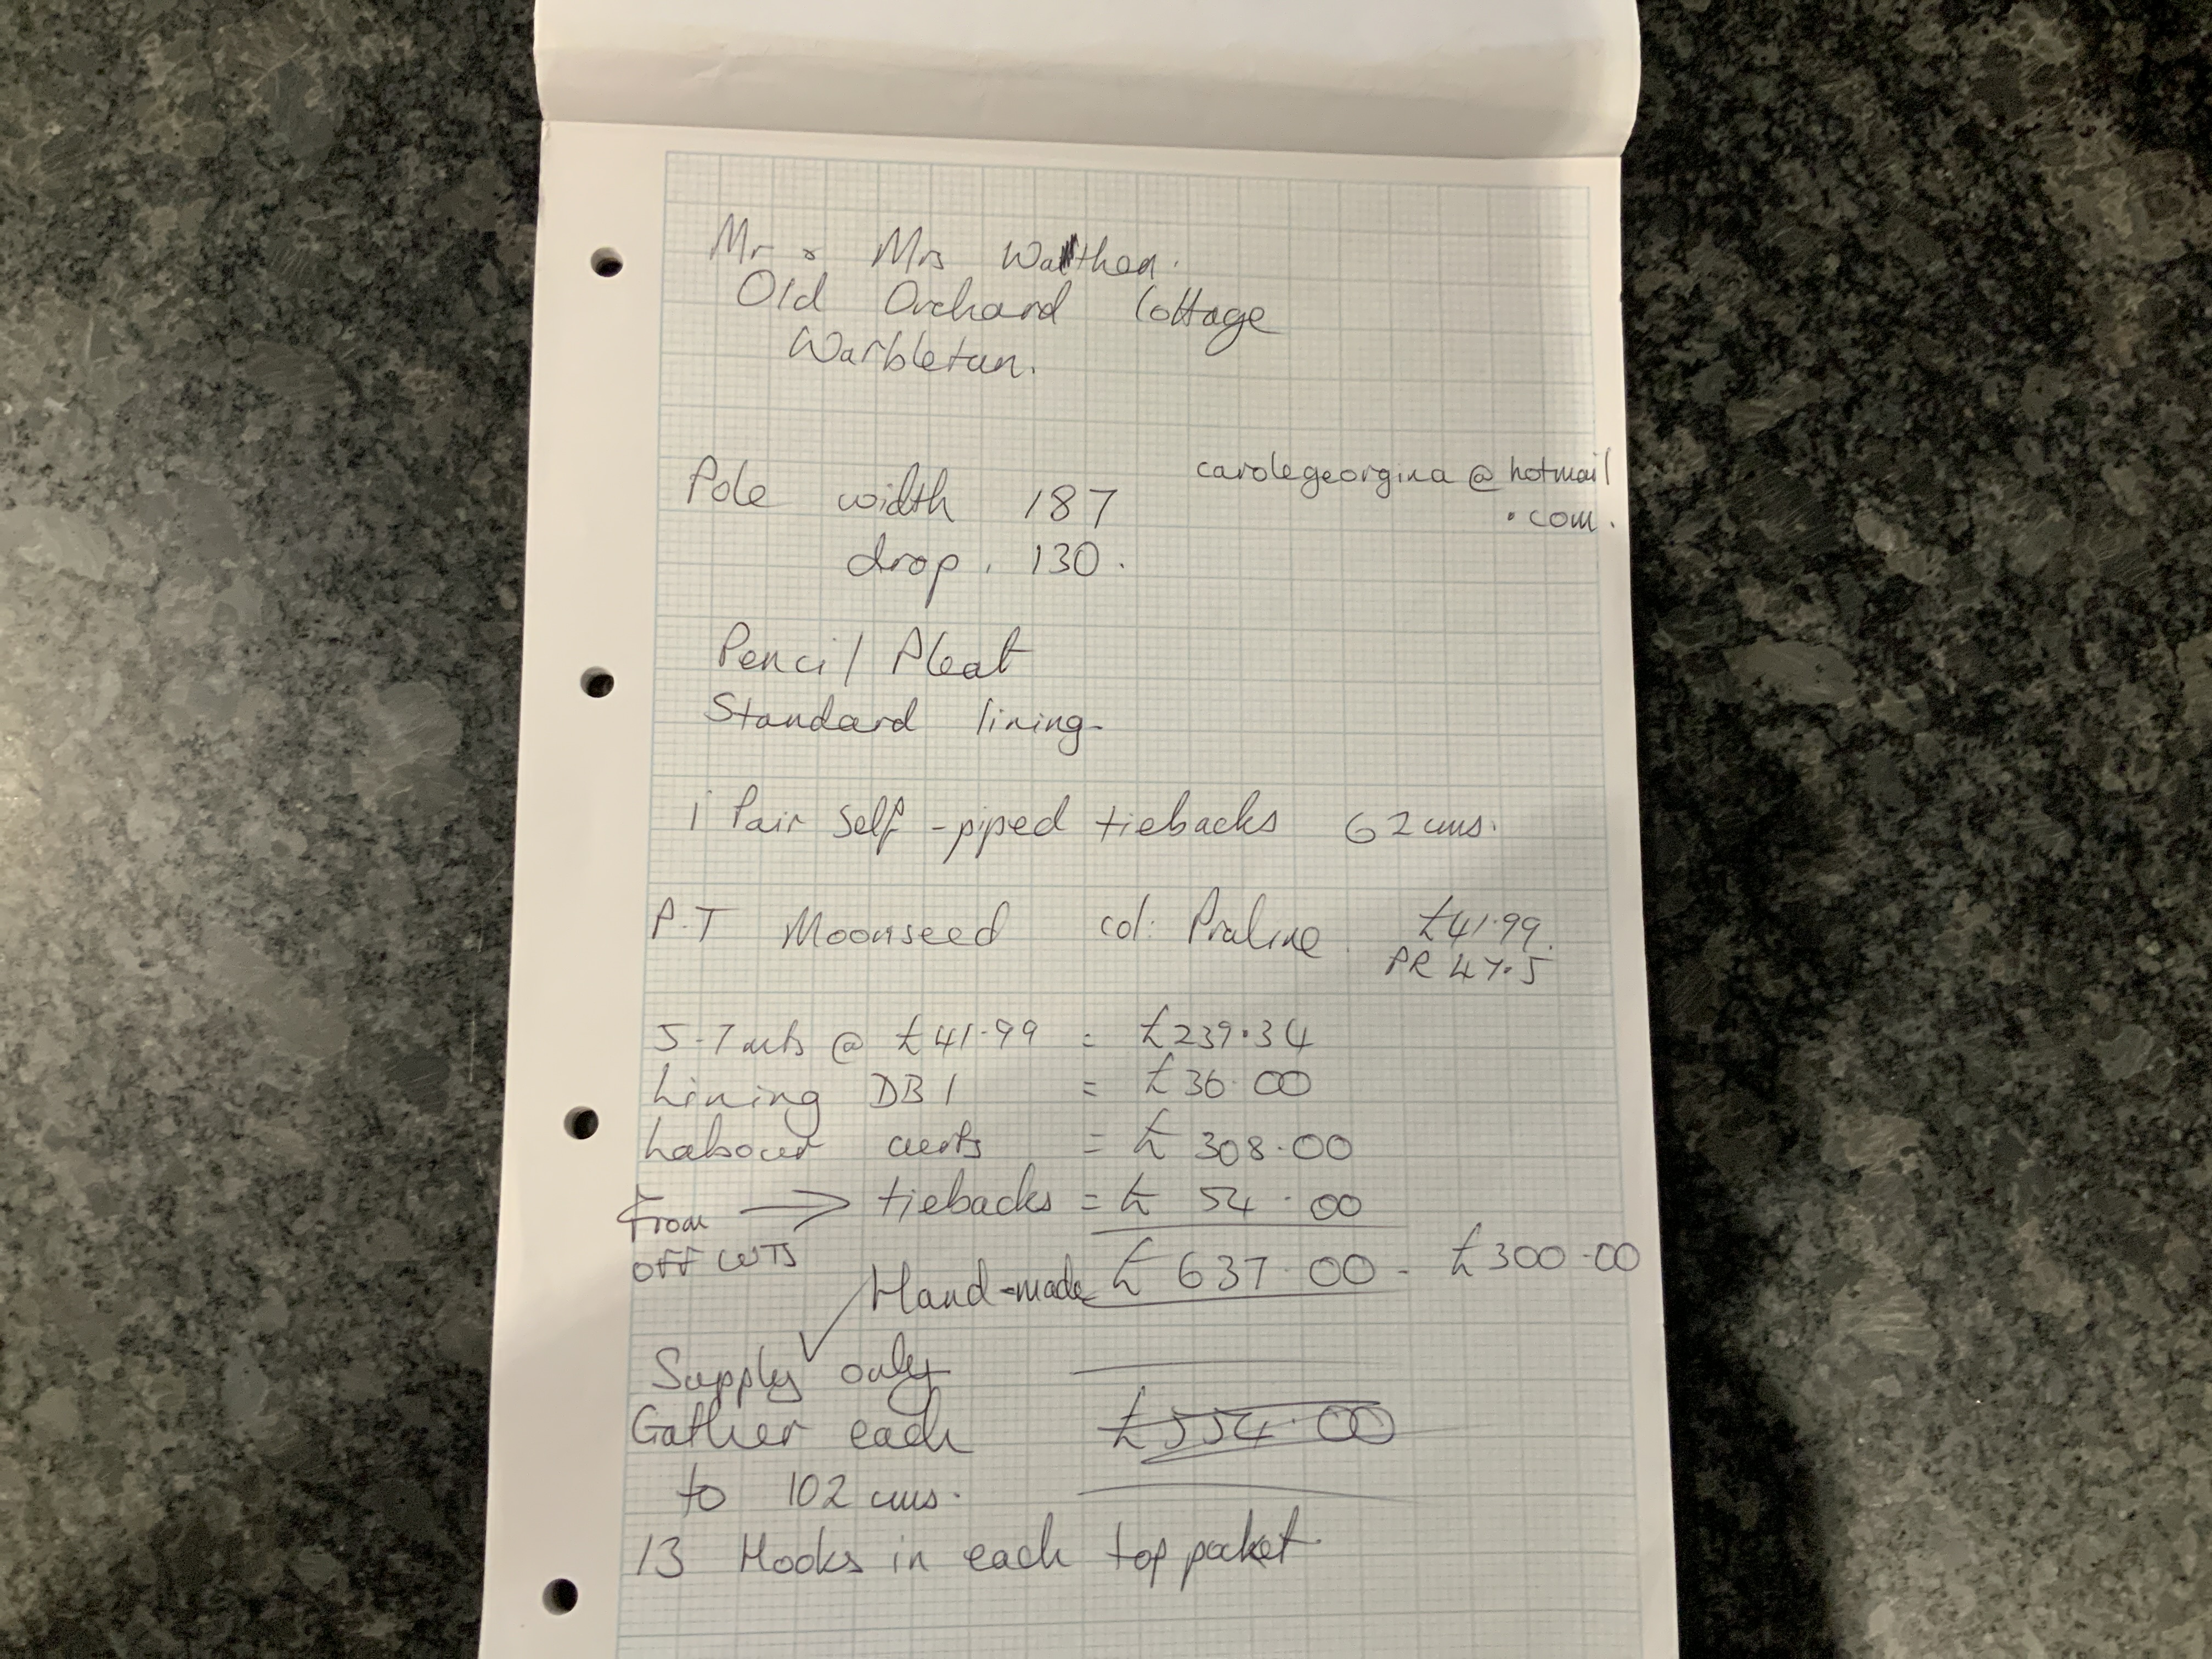 Mr & Mrs Wathen.
Old Orchard Cottage
Warbleton.
carolegeorgina@hotmail
.com.
Pole width 187
drop. 130.
Pencil Pleat
Standard lining
1 Pair Self-piped tiebacks 62 cms.
P.T Moonseed col: Praline. £41.99.
PR 47.5
5.7 mts @ £41.99 = £239.34
Lining DB1 = £36.00
Labour certs = £308.00
From → tiebacks = £54.00
off cuts
Hand-made £637.00 - £300.00
Supply only
Gather each £554.00
to 102 cms.
13 Hooks in each top pocket